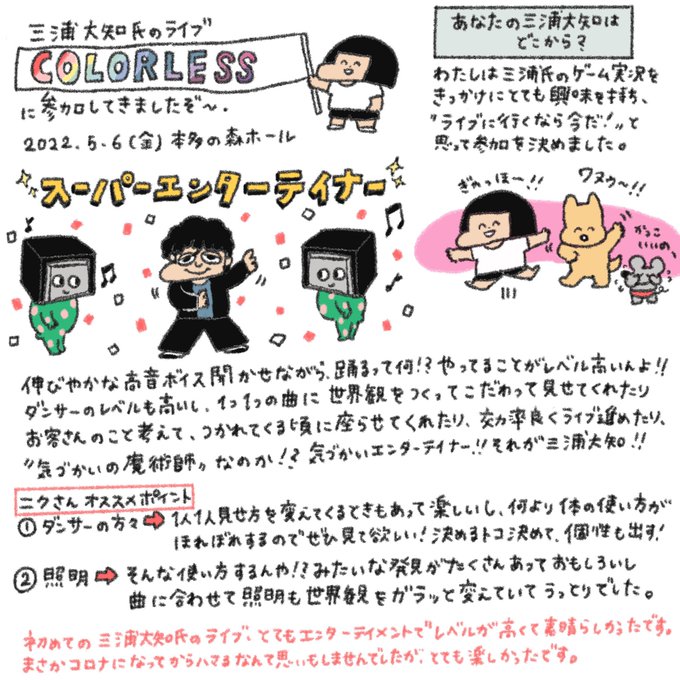 三浦大知氏のライブ
COLORLESS
に参加してきましたぞ〜.
2022.5.6(金) 本多の森ホール
あなたの三浦大知は
どこから?
わたしは三浦氏のゲーム実況を
きっかけにとても興味を持ち、
"ライブに行くなら今だ!"と
思って参加を決めました。
スーパーエンターテイナー
ぎゃっほー!!
ワヌゥ〜!!
かっこ
いいの、
伸びやかな高音ボイス聞かせながら、踊るって何!?やってることがレベル高いんよ!!
ダンサーのレベルも高いし、1つ1つの曲に世界観をつくってこだわって見せてくれたり
お客さんのこと考えて、つかれてくる頃に座らせてくれたり、効率良くライブ進めたり、
"気づかいの魔術師"なのか!?気づかいエンターテイナー!!それが三浦大知!!
ニクさんオススメポイント
① ダンサーの方々➡1人1人見せ方を変えてくるときもあって楽しいし、何より体の使い方が
ほれぼれするのでぜひ見て欲しい!決めるトコ決めて、個性も出す!
② 照明➡そんな使い方するんや!?みたいな発見がたくさんあっておもしろいし
曲に合わせて照明も世界観をガラッと変えていてうっとりでした。
初めての三浦大知氏のライブ、とてもエンターテイメントでレベルが高くて素晴らしかったです。
まさかコロナになってからハマるなんて思いもしませんでしたが、とても楽しかったです。